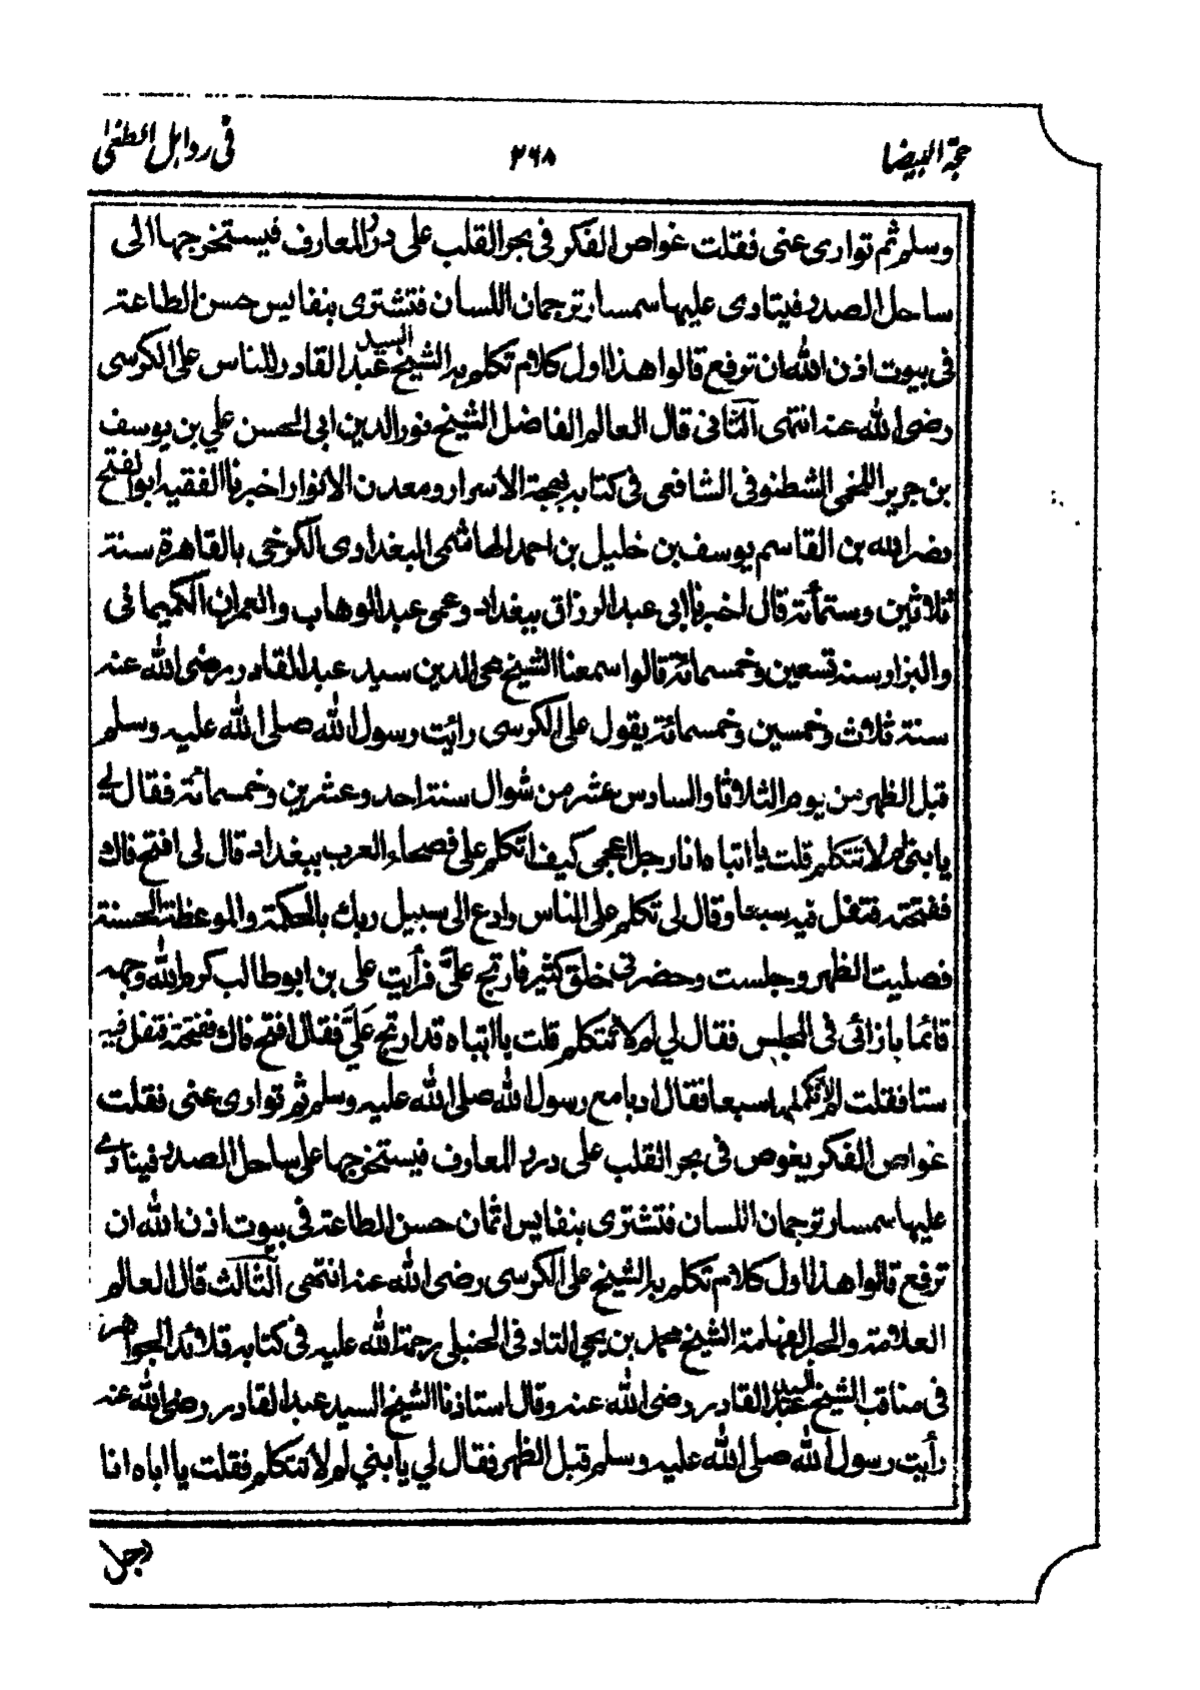 حجة البيضا
٢٦٨
فى رد اهل الطغى
وسلم ثم توارى عنى فقلت غواص الفكر فى بحر القلب على درر المعارف فيستخرجها الى
ساحل الصدر فينادى عليها سمسار ترجمان اللسان فتشترى بنفايس حسن الطاعة
فى بيوت اذن الله ان ترفع قالوا هذا اول كلام تكلم به الشيخ السيد عبد القادر للناس على الكرسى
رضى الله عنه انتهى الثانى قال العالم الفاضل الشيخ نور الدين ابى الحسن علي بن يوسف
بن جرير اللخمى الشطنوفى الشافعى فى كتابه بهجة الاسرار ومعدن الانوار اخبرنا الفقيه ابو الفتح
نصر الله بن القاسم يوسف بن خليل بن احمد الهاشمى البغدادى الكرخى بالقاهرة سنة
ثلاثين وستمأة قال اخبرنا ابى عبد الرزاق ببغداد وعمى عبد الوهاب والعمران الكميماتى
والبزار سنة تسعين وخمسمائة قالوا سمعنا الشيخ محى الدين سيد عبد القادر رضى الله عنه
سنة ثلاث وخمسين وخمسمائة يقول على الكرسى رائيت رسول الله صلى الله عليه وسلم
قبل الظهر من يوم الثلاثا والسادس عشر من شوال سنة احد وعشرين وخمسمائة فقال لي
يا بنى لم لا تتكلم قلت يا ابتاه انا رجل اعجمى كيف اتكلم على فصحاء العرب ببغداد قال لى افتح فاك
ففتحته فتفل فيه سبعا وقال لى تكلم على الناس وادع الى سبيل ربك بالحكمة والموعظة الحسنة
فصليت الظهر وجلست وحضرنى خلق كثير فارتج علىَّ فرأيت على بن ابو طالب كرم الله وجهه
قائما بازائى فى المجلس فقال لي لم لا تتكلم قلت يا ابتاه قد ارتج عَلَيَّ فقال افتح فاك ففتحته فتفل فيه
ستا فقلت لم لا تكملها سبعا فقال ادبا مع رسول الله صلى الله عليه وسلم ثم توارى عنى فقلت
غواص الفكر يغوص فى بحر القلب على درر المعارف فيستخرجها على ساحل الصدر فينادى
عليها سمسار ترجمان اللسان فتشترى بنفايس اثمان حسن الطاعة فى بيوت اذن الله ان
ترفع قالوا هذا اول كلام تكلم به الشيخ على الكرسى رضى الله عنه انتهى الثالث قال العالم
العلامة والحبر الفهامة الشيخ محمد بن يحي التادفى الحنبلى رحمة الله عليه فى كتابه قلائد الجواهر
فى مناقب الشيخ السيد عبد القادر رضى الله عنه وقال استاذنا الشيخ السيد عبد القادر رضى الله عنه
رأيت رسول الله صلى الله عليه وسلم قبل الظهر فقال لي يا بني لم لا تتكلم فقلت يا اباه انا
رجل